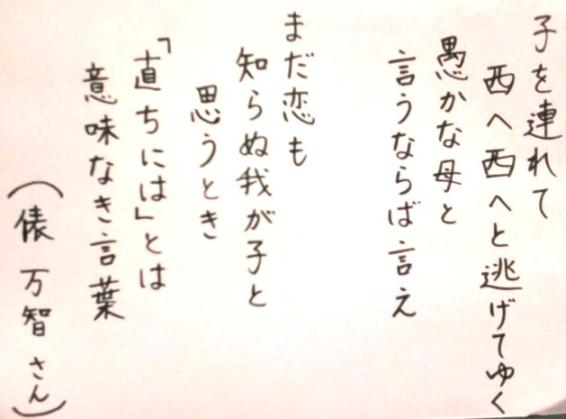 子を連れて
西へ西へと逃げてゆく
愚かな母と
言うならば言え
まだ恋も
知らぬ我が子と
思うとき
「直ちには」とは
意味なき言葉
(俵 万智さん)